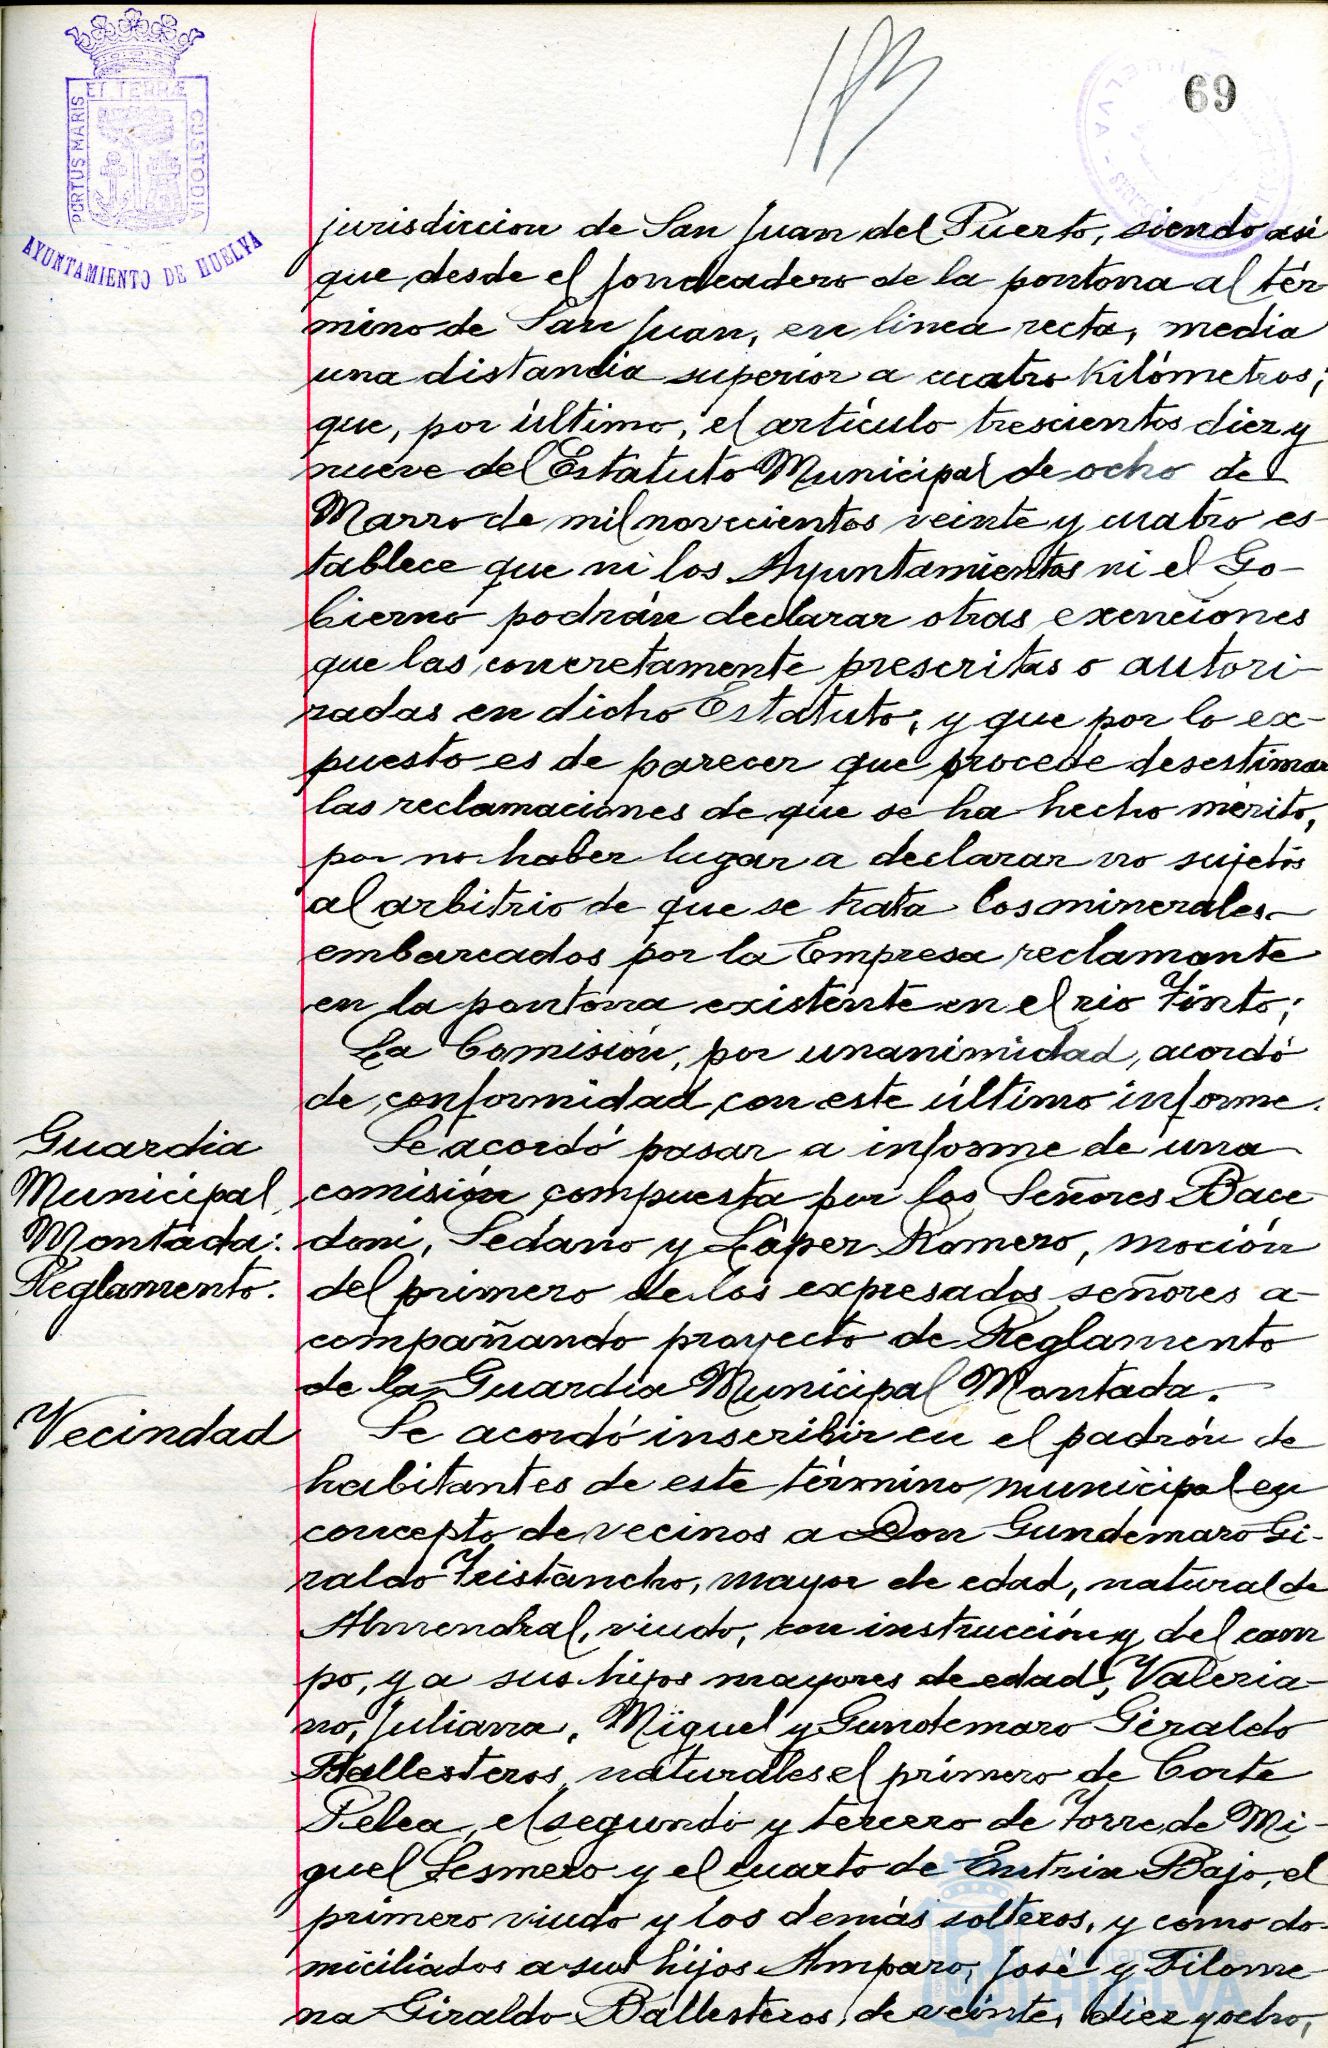 ET TERRÆ
PORTUS MARIS
CUSTODIA
AYUNTAMIENTO DE HUELVA
69
jurisdiccion de San Juan del Puerto, siendo asi
que desde el fondeadero de la pontona al tér
mino de San Juan, en linea recta, media
una distancia superior a cuatro Kilómetros;
que, por último, el artículo trescientos diez y
nueve del Estatuto Municipal de ocho de
Marzo de mil novecientos veinte y cuatro es-
tablece que ni los Ayuntamientos ni el Go-
bierno podrán declarar otras exenciones
que las concretamente prescritas o autori-
zadas en dicho Estatuto, y que por lo ex-
puesto es de parecer que procede desestimar
las reclamaciones de que se ha hecho mérito,
por no haber lugar a declarar no sujetos
al arbitrio de que se trata los minerales
embarcados por la Empresa reclamante
en la pontona existente en el rio Tinto;
La Comisión, por unanimidad, acordó
de conformidad con este último informe.
Guardia
Municipal
Montada:
Reglamento.
Se acordó pasar a informe de una
comisión compuesta por los Señores Bace
doni, Sedano y López Romero, moción
del primero de los expresados señores a-
compañando proyecto de Reglamento
de la Guardia Municipal Montada.
Vecindad
Se acordó inscribir en el padrón de
habitantes de este término municipal en
concepto de vecinos a Don Gundemaro Gi-
raldo Tristancho, mayor de edad, natural de
Almendral, viudo, con instrucción y del cam
po, y a sus hijos mayores de edad, Valeria-
no, Juliana, Miguel y Gundemaro Giraldo
Ballesteros, naturales el primero de Corte
Pelea, el segundo y tercero de Torre de Mi-
guel Sesmero y el cuarto de Entrin Bajo, el
primero viudo y los demás solteros, y como do-
miciliados a sus hijos Amparo, José y Filome-
na Giraldo Ballesteros, de veinte, diez y ocho,
Ayuntamiento de
HUELVA